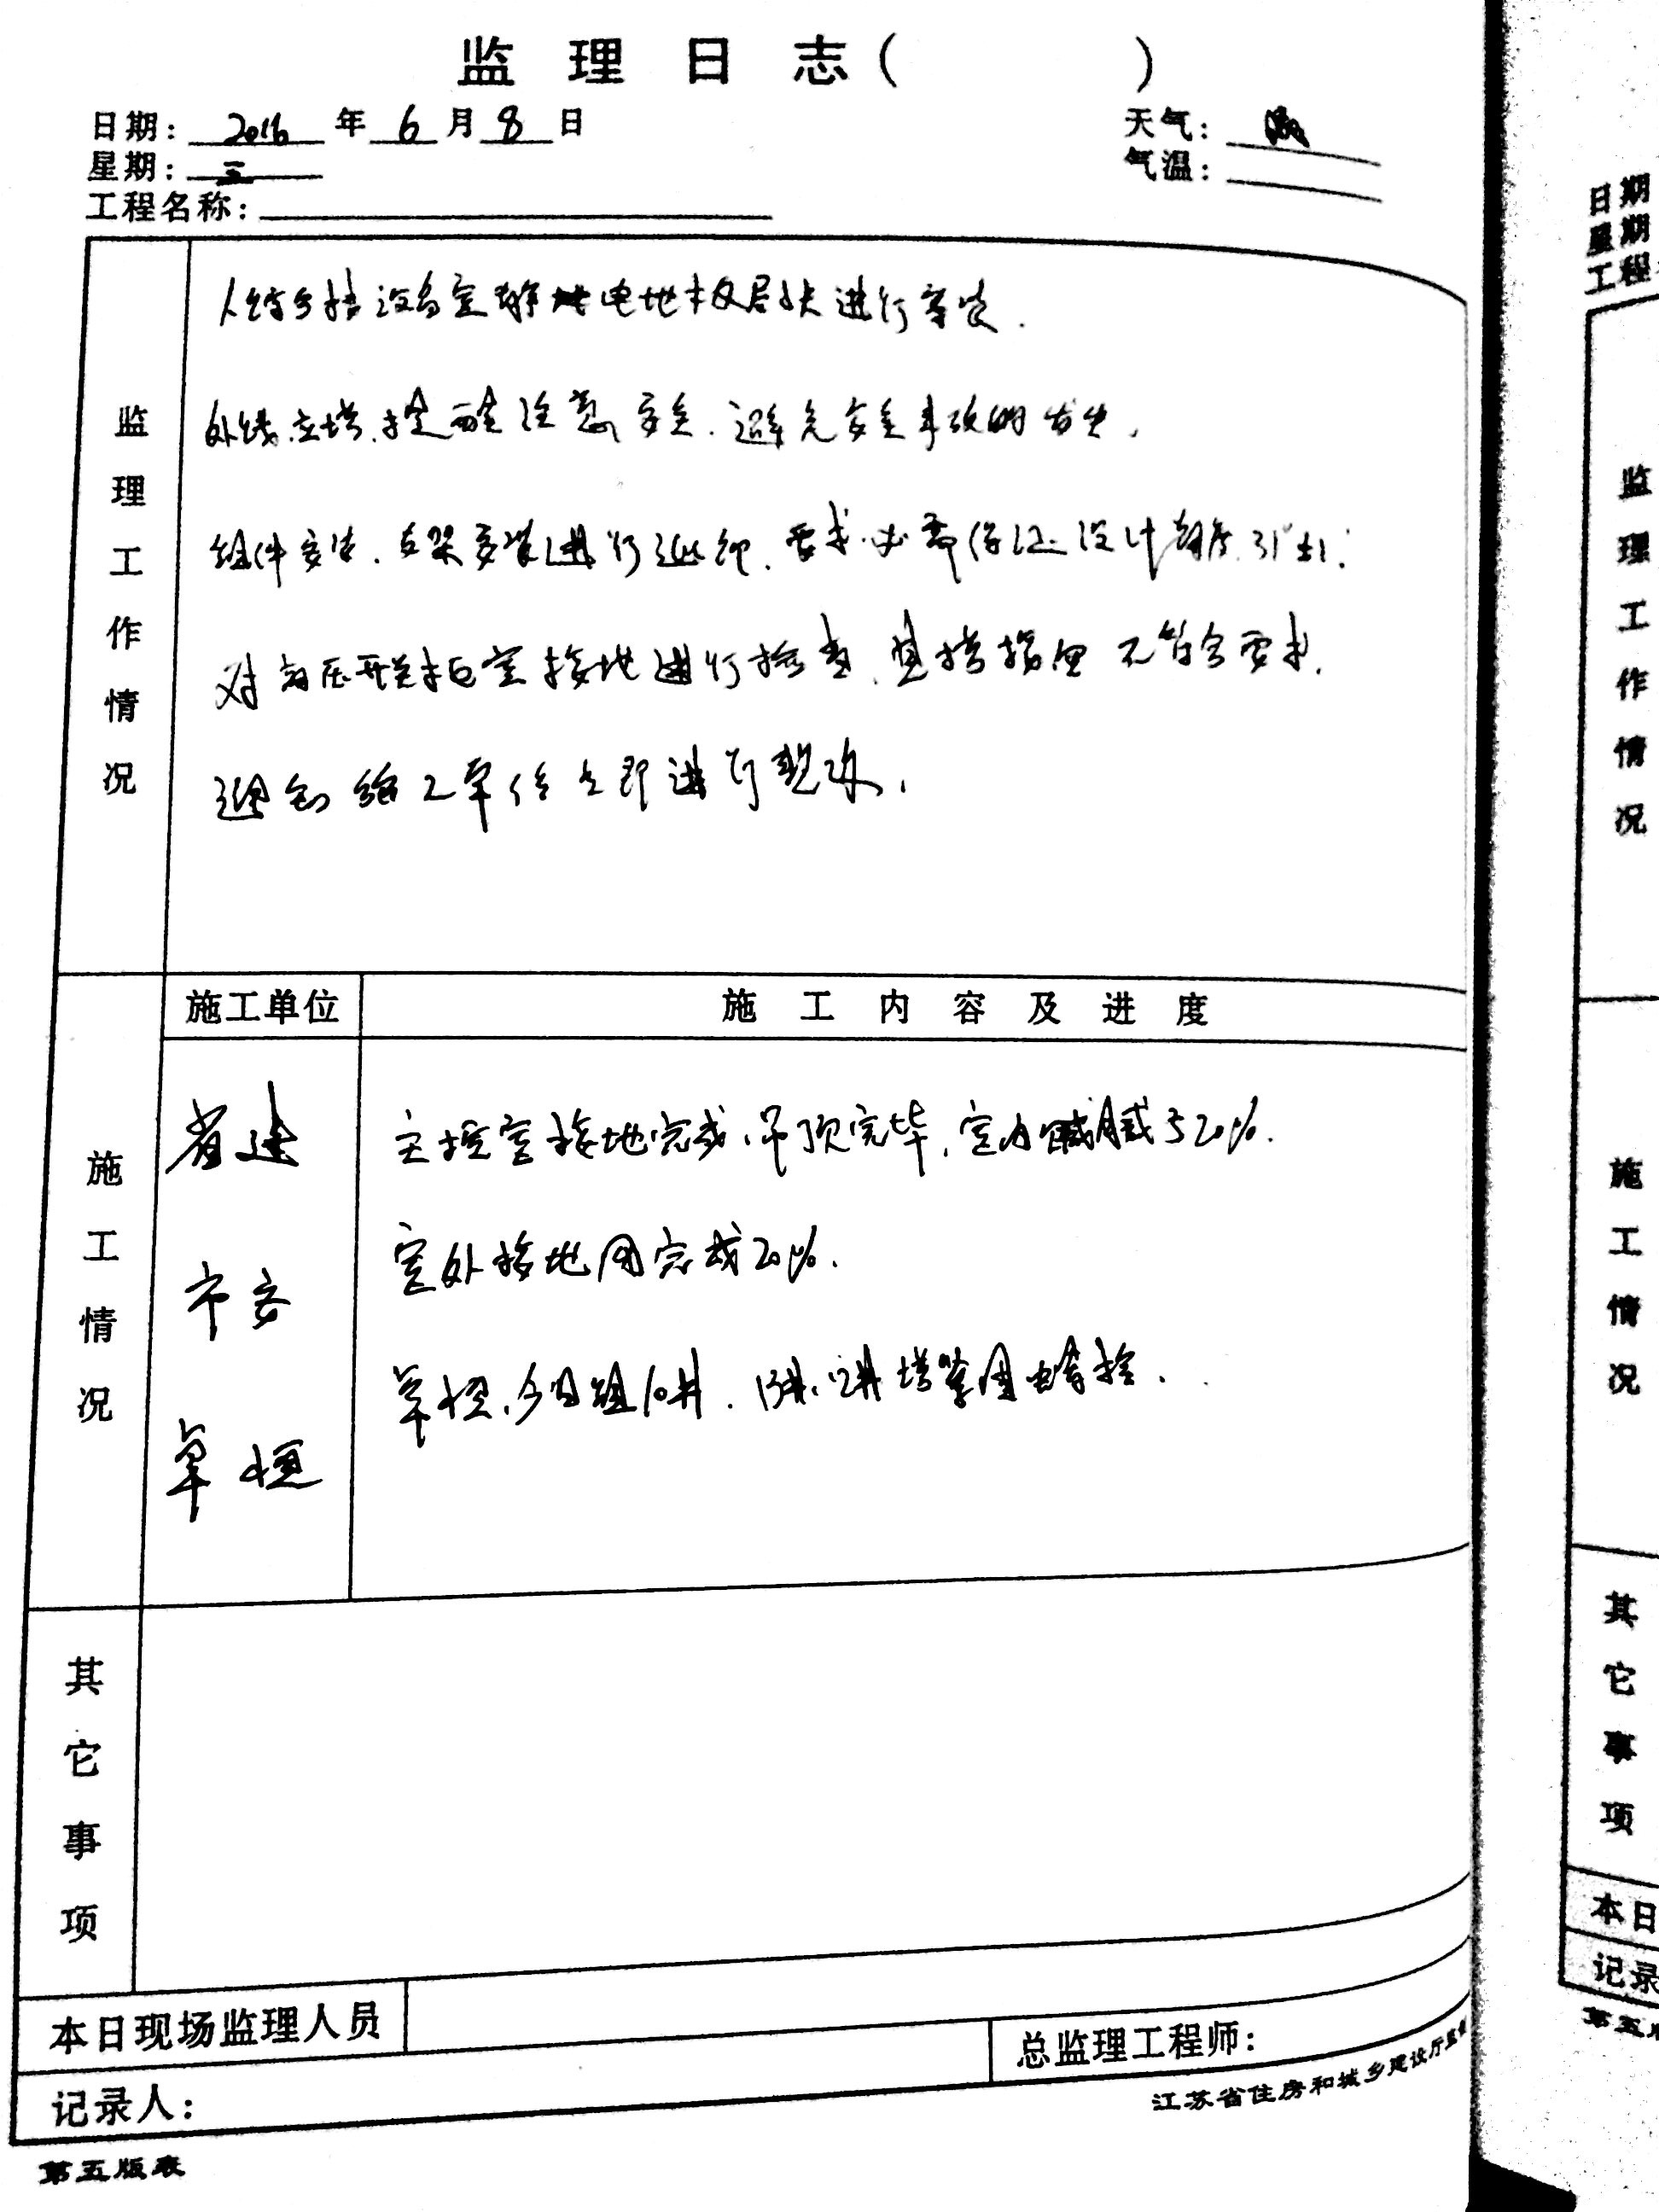 监理日志（ ）
日期：2016年6月8日 天气：
星期：三 气温：
工程名称：
监理工作情况
设备室静电地板 进行
外线立塔，提醒注意安全，避免安全事故的发生。
组件安装、支架安装进行巡视，要求必需保证设计
对高压开关柜室接地进行检查，其搭接 不符合要求，
通知施工单位立即进行整改。
施工单位 施工内容及进度
施工情况
省建 主控室接地完成，吊顶完毕，室内 20%.
市安 室外接地网完成20%.
卓恒 卓恒，今日组 塔紧固螺栓。
其它事项
本日现场监理人员
总监理工程师：
记录人：
江苏省住房和城乡建设厅监
第五版表
日期
星期
工程
监理工作情况
施工情况
其它事项
本日
记录
第五